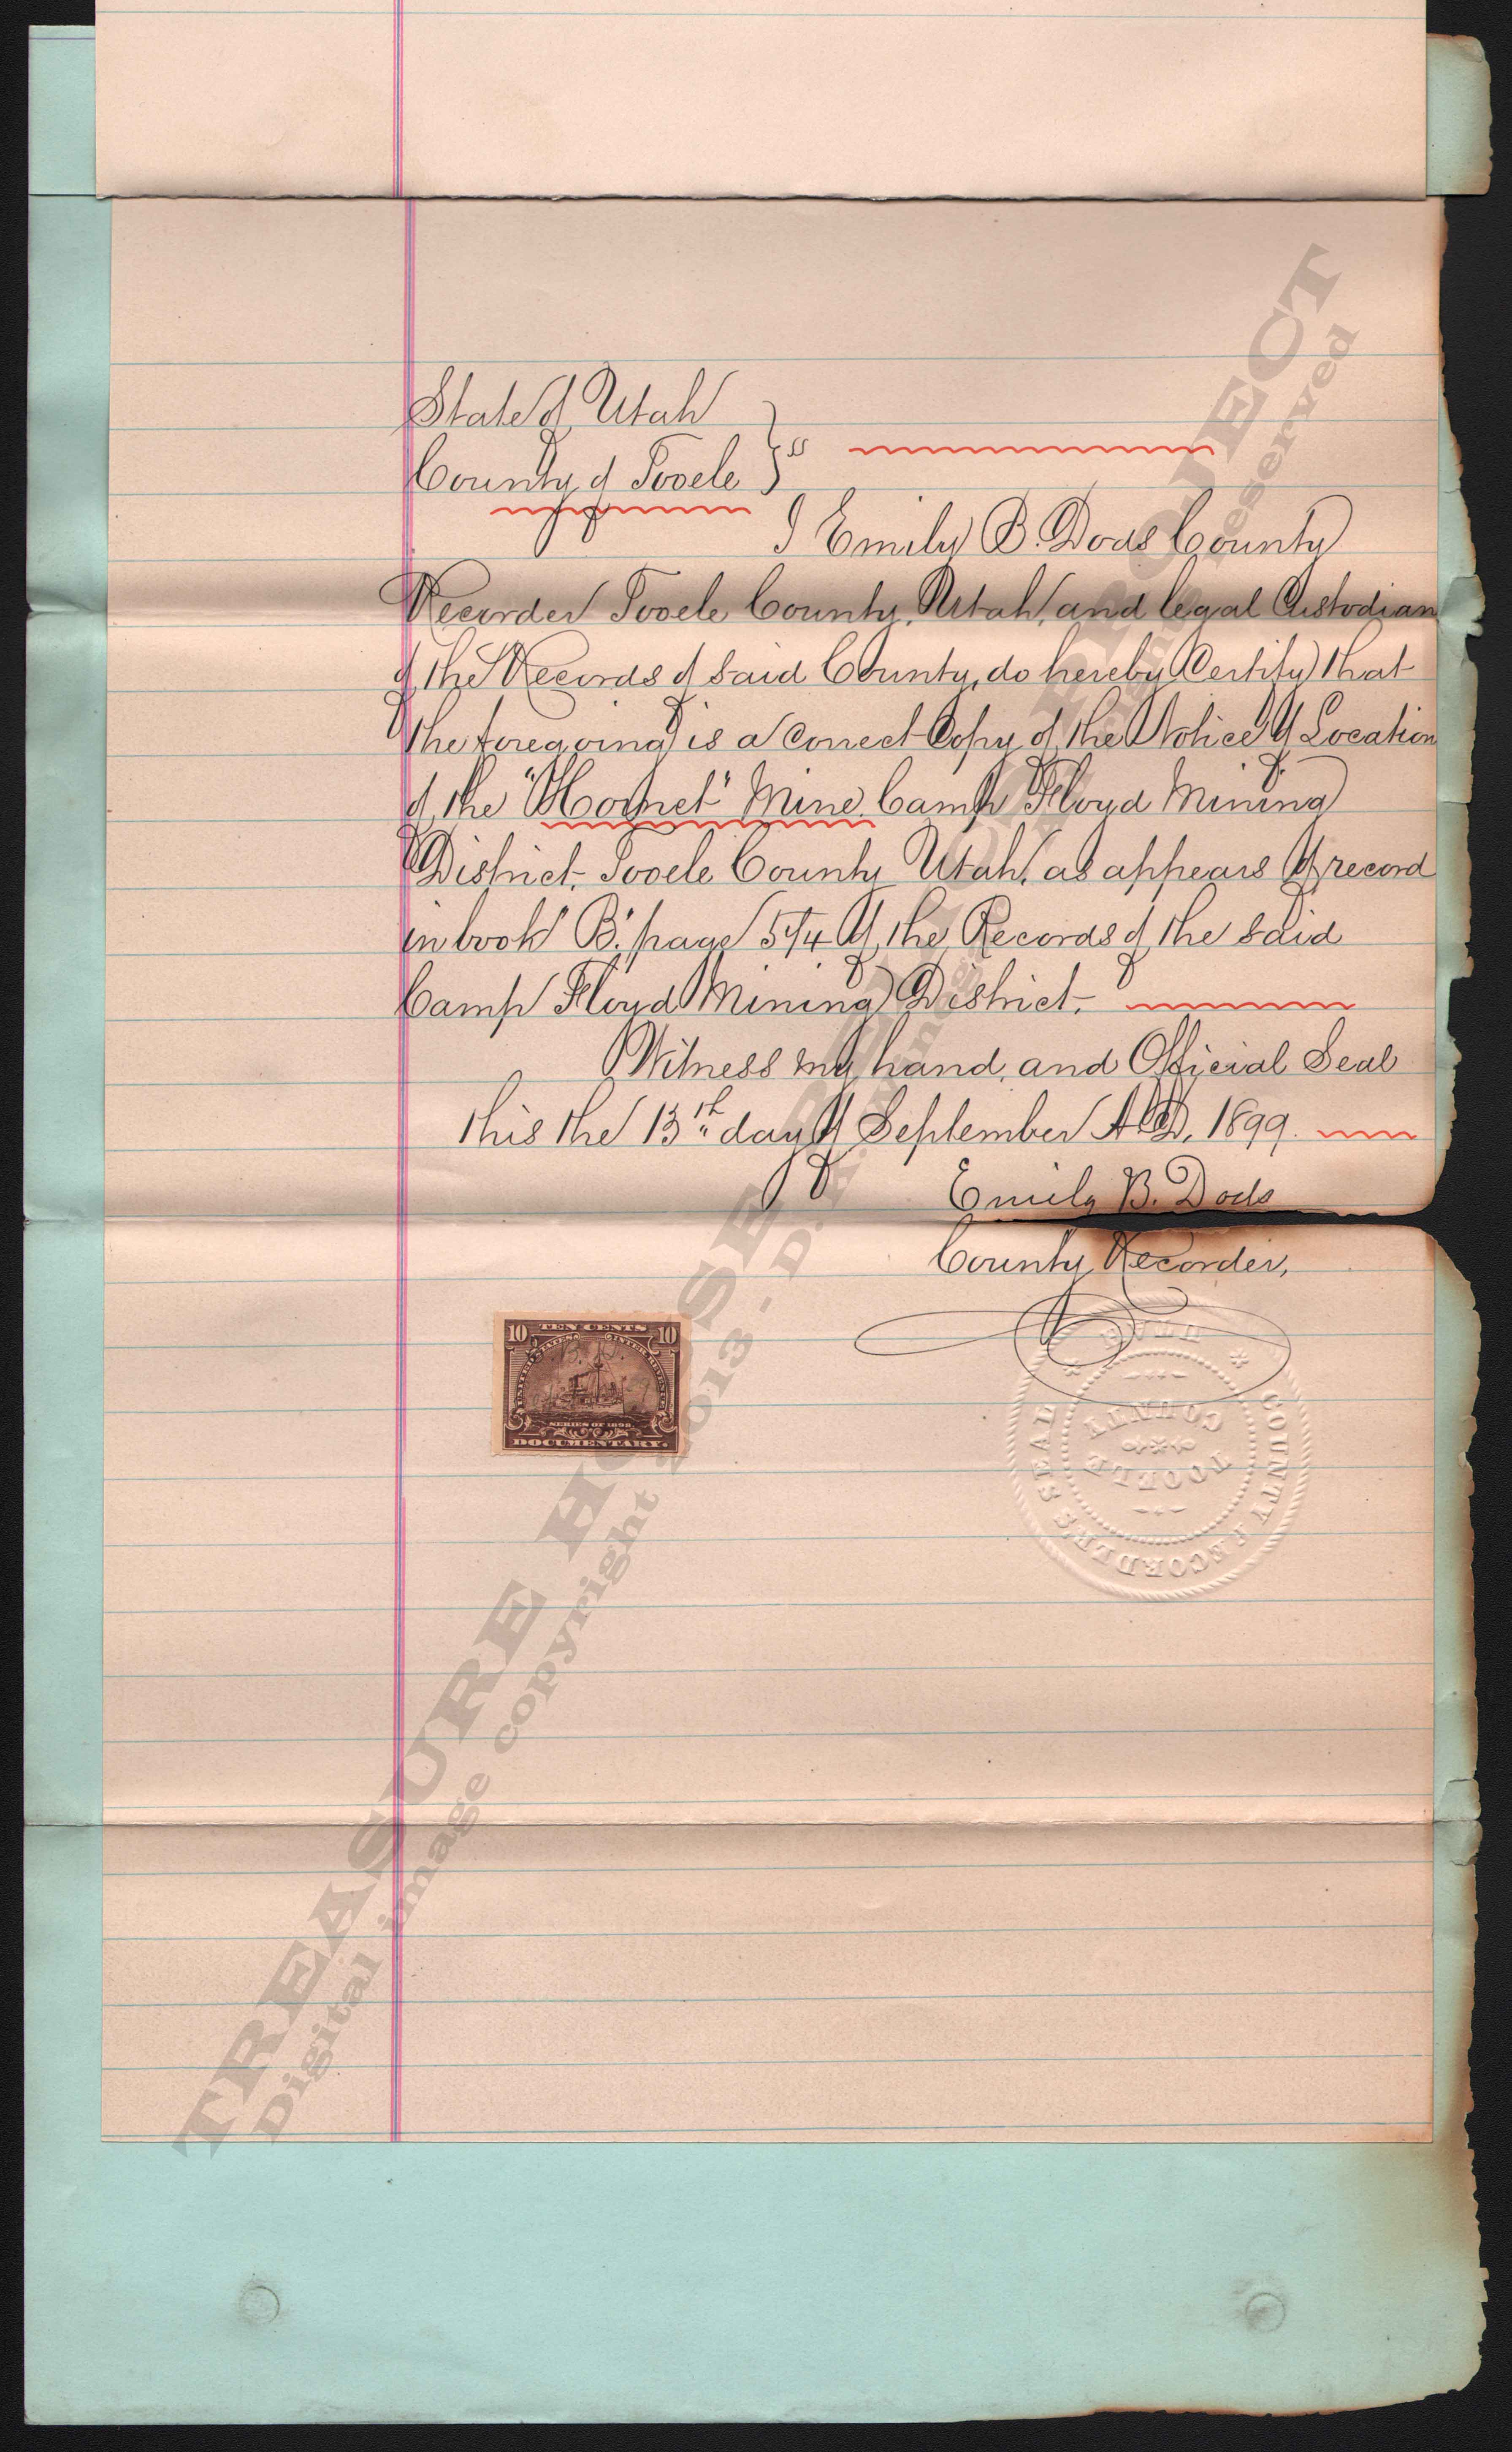 State of Utah
County of Tooele } ss
I Emily B. Dods County
Recorder Tooele County, Utah, and legal Custodian
of the Records of said County, do hereby Certify that
the foregoing is a Correct Copy of the Notice of Location
of the "Hornet" Mine, Camp Floyd Mining
District, Tooele County Utah, as appears of record
in book "B", page 574 of the Records of the said
Camp Floyd Mining District.
Witness my hand, and Official Seal
this the 13th day of September A.D. 1899.
Emily B. Dods
County Recorder,
10 TEN CENTS 10
UNITED STATES INTER. REVENUE
SERIES OF 1898.
DOCUMENTARY.
COUNTY RECORDER'S SEAL
UTAH
TOOELE
COUNTY
TREASURE HOUSE RELICS PROJECT
Digital image copyright 2013 - D. A. reserved